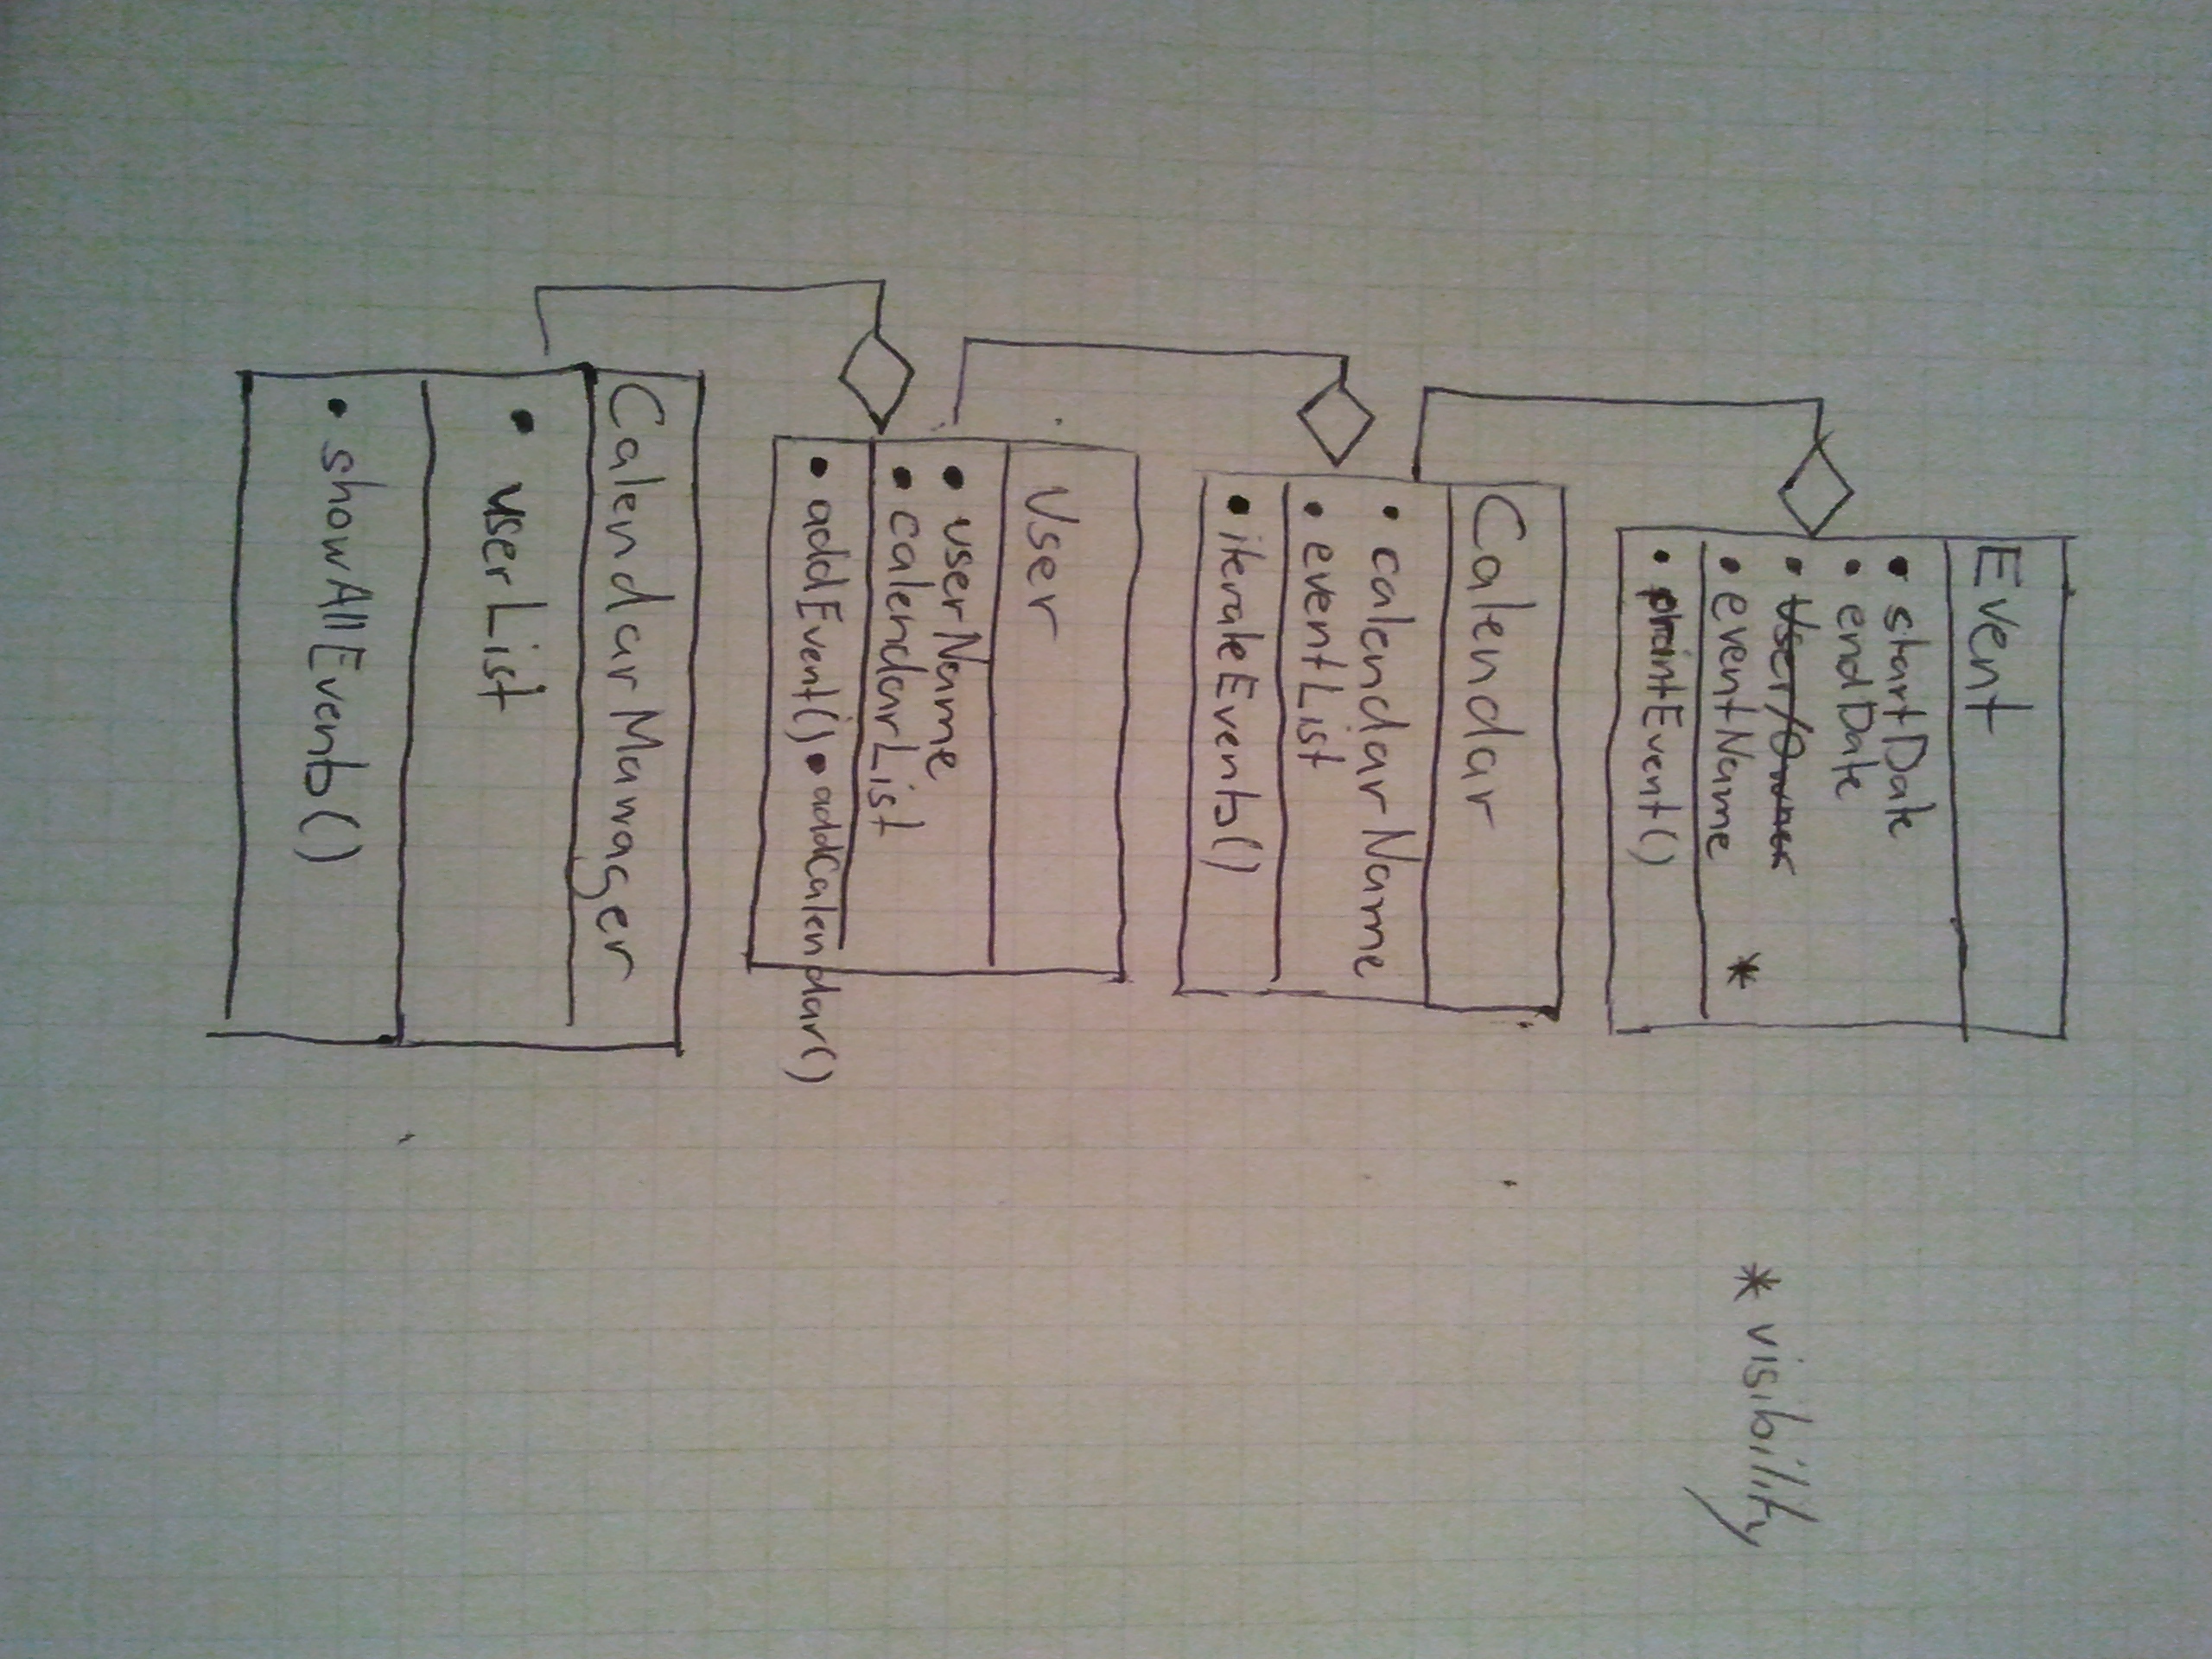 Event
• startDate
• endDate
• User/Owner
• eventName *
* visibility
• printEvent()
Calendar
• calendarName
• eventList
• iterateEvents()
User
• userName
• calendarList
• addEvent() • addCalendar()
CalendarManager
• userList
• showAllEvents()